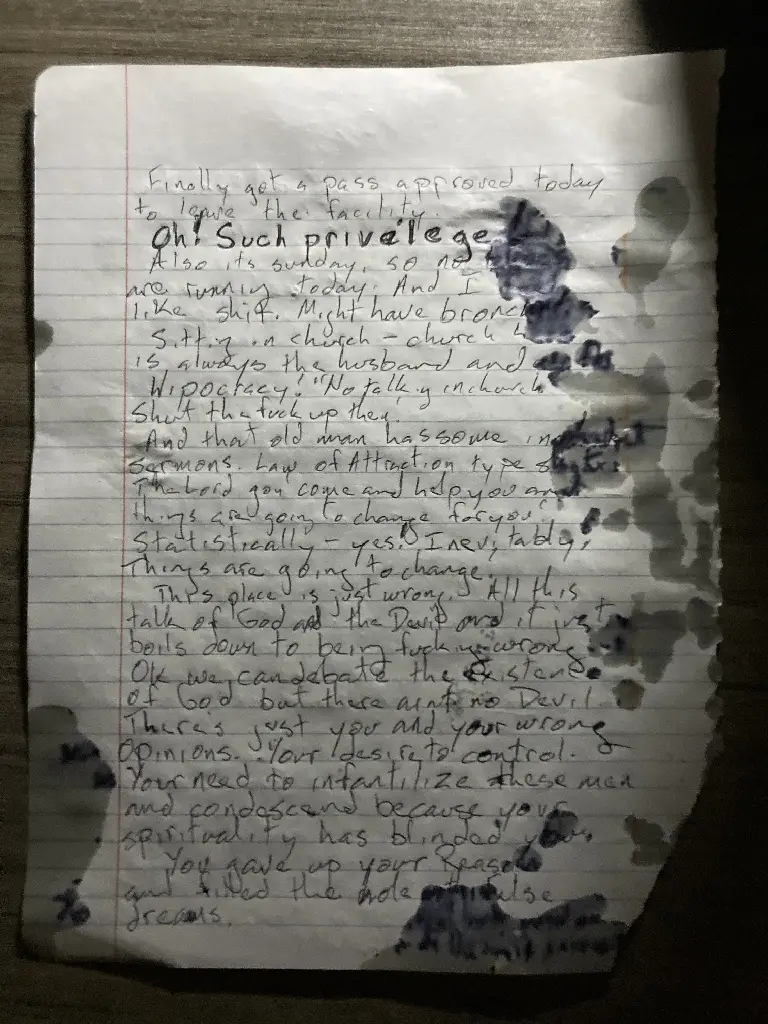 Finally got a pass approved today
to leave the facility.
Oh! Such privelege
Also its sunday, so no
are running today. And I
like shit. Might have bronch
Sitting in church – church
is always the husband and
Hipocracy! "No talking in church
Shut the fuck up then.
And that old man has some
sermons. Law of Attraction type
The Lord gon come and help you and
things are going to change for you!
Statistically – yes. Inevitably,
Things are going to change.
This place is just wrong. All this
talk of God and the Devil and it just
boils down to being fucking wrong.
OK we can debate the existence
of God but there aint no Devil.
There's just you and your wrong
Opinions. Your desire to control.
Your need to infantilize these men
and condescend because your
spirituality has blinded you.
You gave up your Reason
and filled the hole false
dreams.